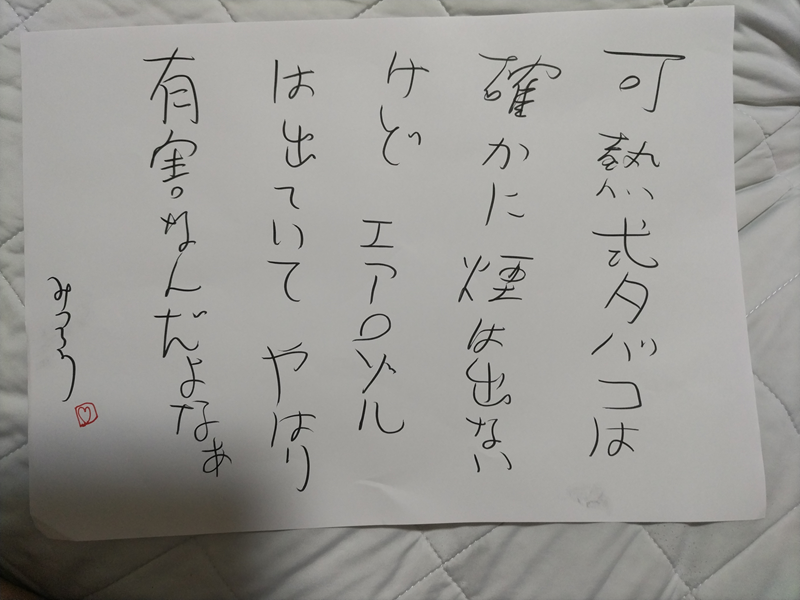 可熱式タバコは
確かに煙は出ない
けど エアロゾル
は出ていて やはり
有害なんだよなぁ
みつろう